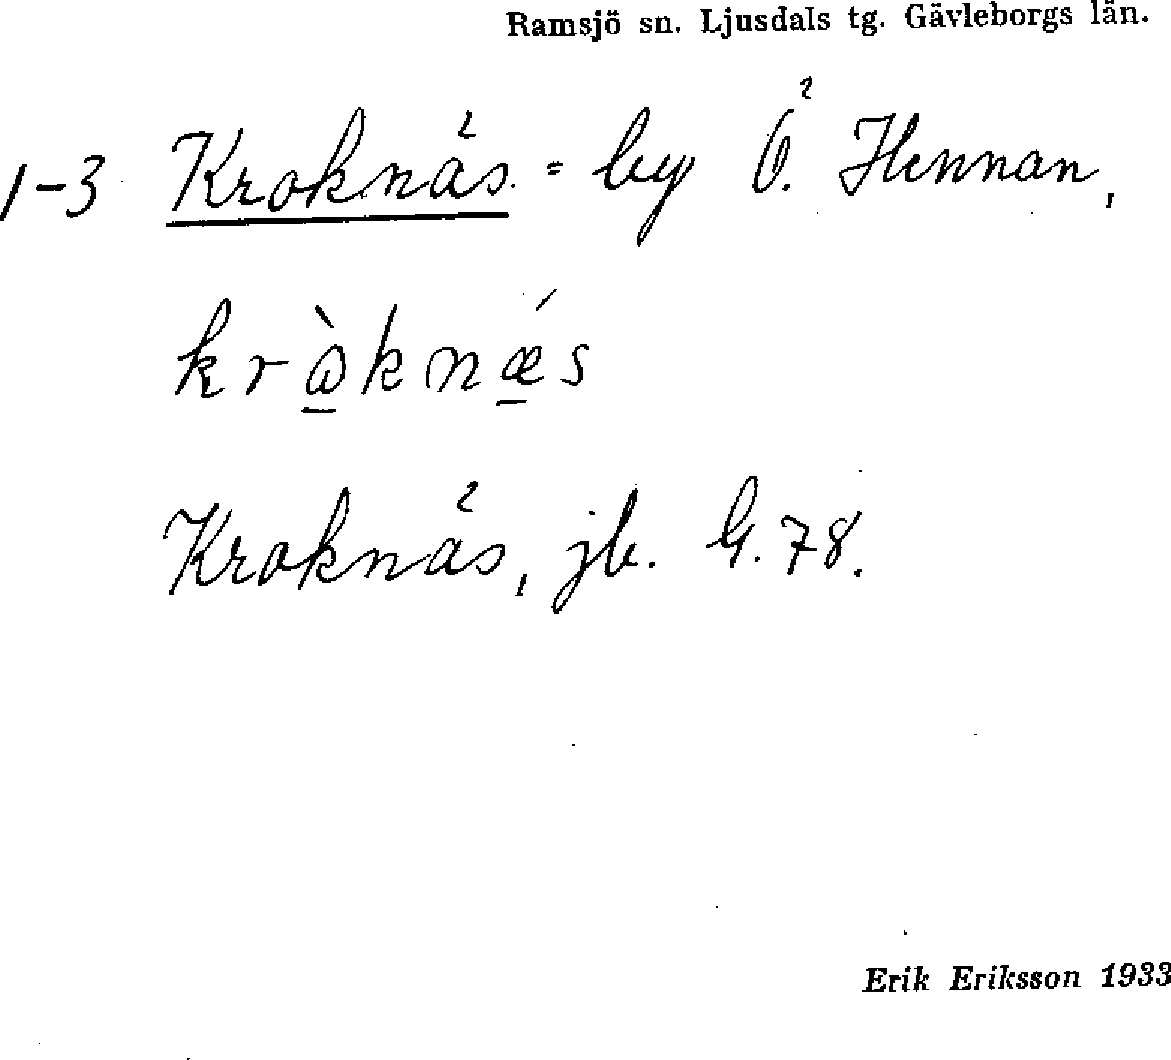 Ramsjö sn. Ljusdals tg. Gävleborgs län.
1-3 Kroknäs = by Ö. Hennan,
kròknǽs
Kroknäs, jb. G. 78.
Erik Eriksson 1933